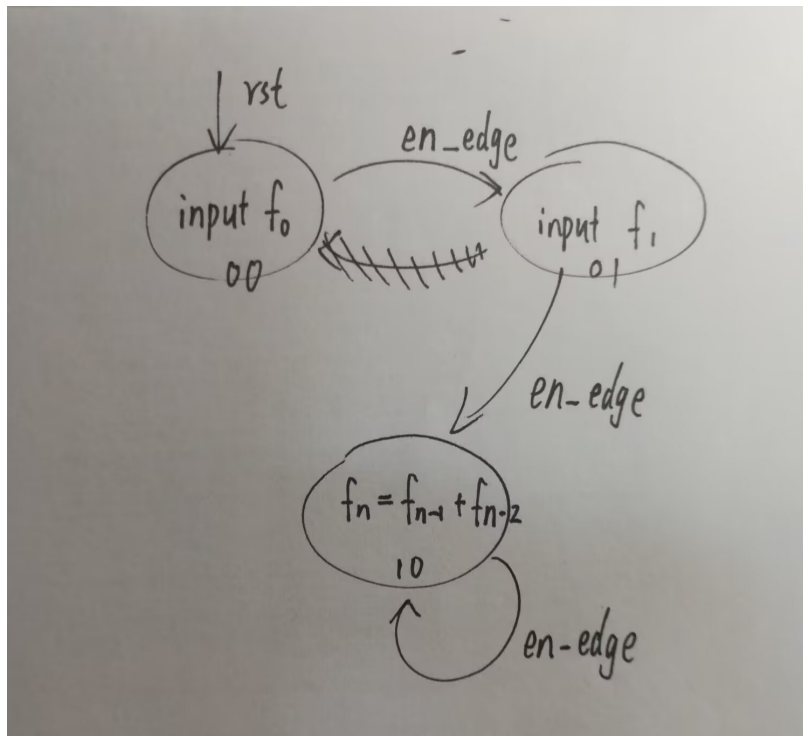 rst
en_edge
input f₀
00
input f₁
01
en-edge
fₙ = fₙ₋₁ + fₙ₋₂
10
en-edge